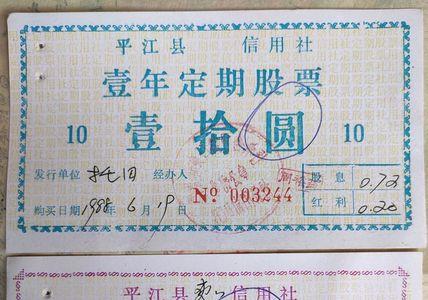 平江县 信用社
壹年定期股票
10 壹拾圆 10
发行单位 经办人
№ 003244
股息 0.72
购买日期 1988年6月19日
红利 0.20
平江县 信用社